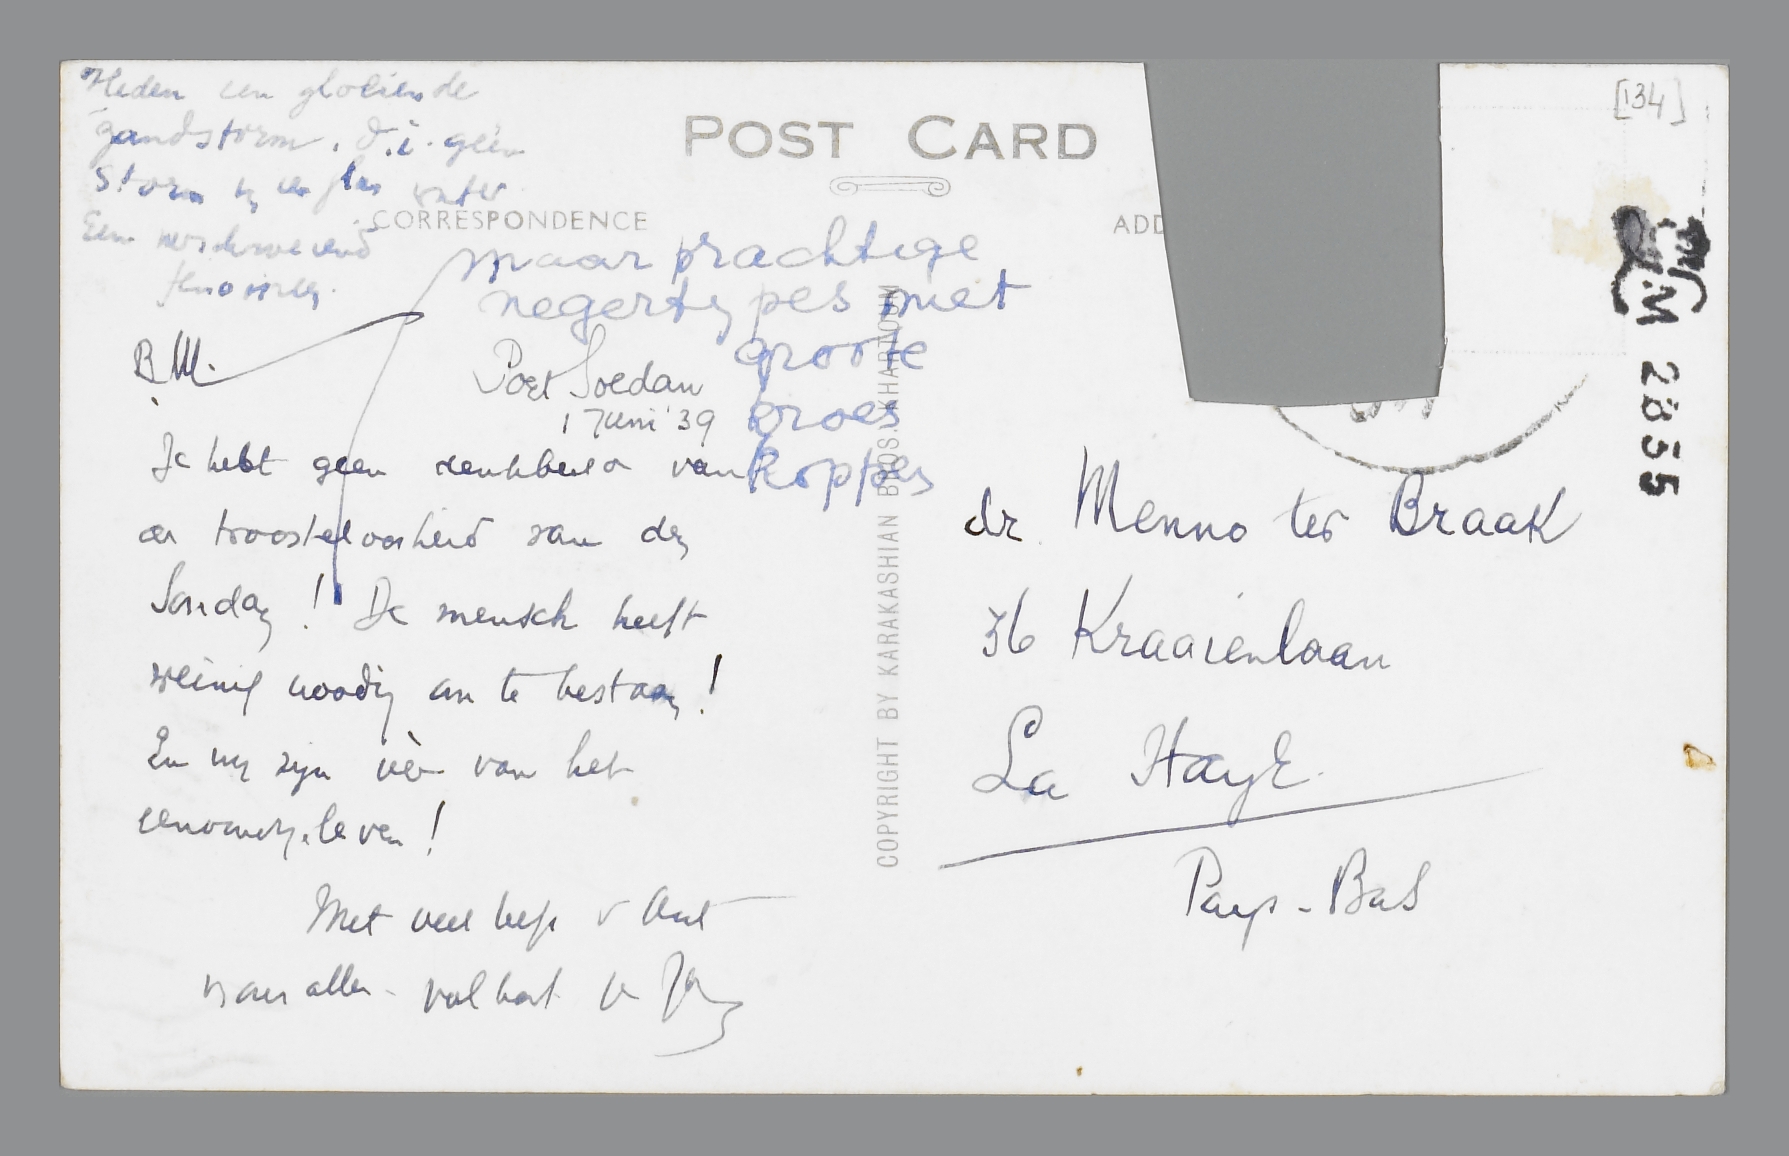 Heden een gloeiende
zandstorm. d.i. geen
storm in een glas water
Een verschroeiend
POST CARD
CORRESPONDENCE
ADD
[134]
maar prachtige
negertypes met
groote
kroes
koppen
B M.
Port Soedan
1 Juni '39
Je hebt geen denkbeeld van
de troosteloosheid van den
Soedan! De mensch heeft
weinig noodig om te bestaan!
En wij zijn vèr van het
leven!
Met veel liefs v Ant
voor allen - valhart je
COPYRIGHT BY KARAKASHIAN BROS. KHARTOUM
dr. Menno ter Braak
36 Kraaienlaan
La Haye.
Pays-Bas
LM 2855